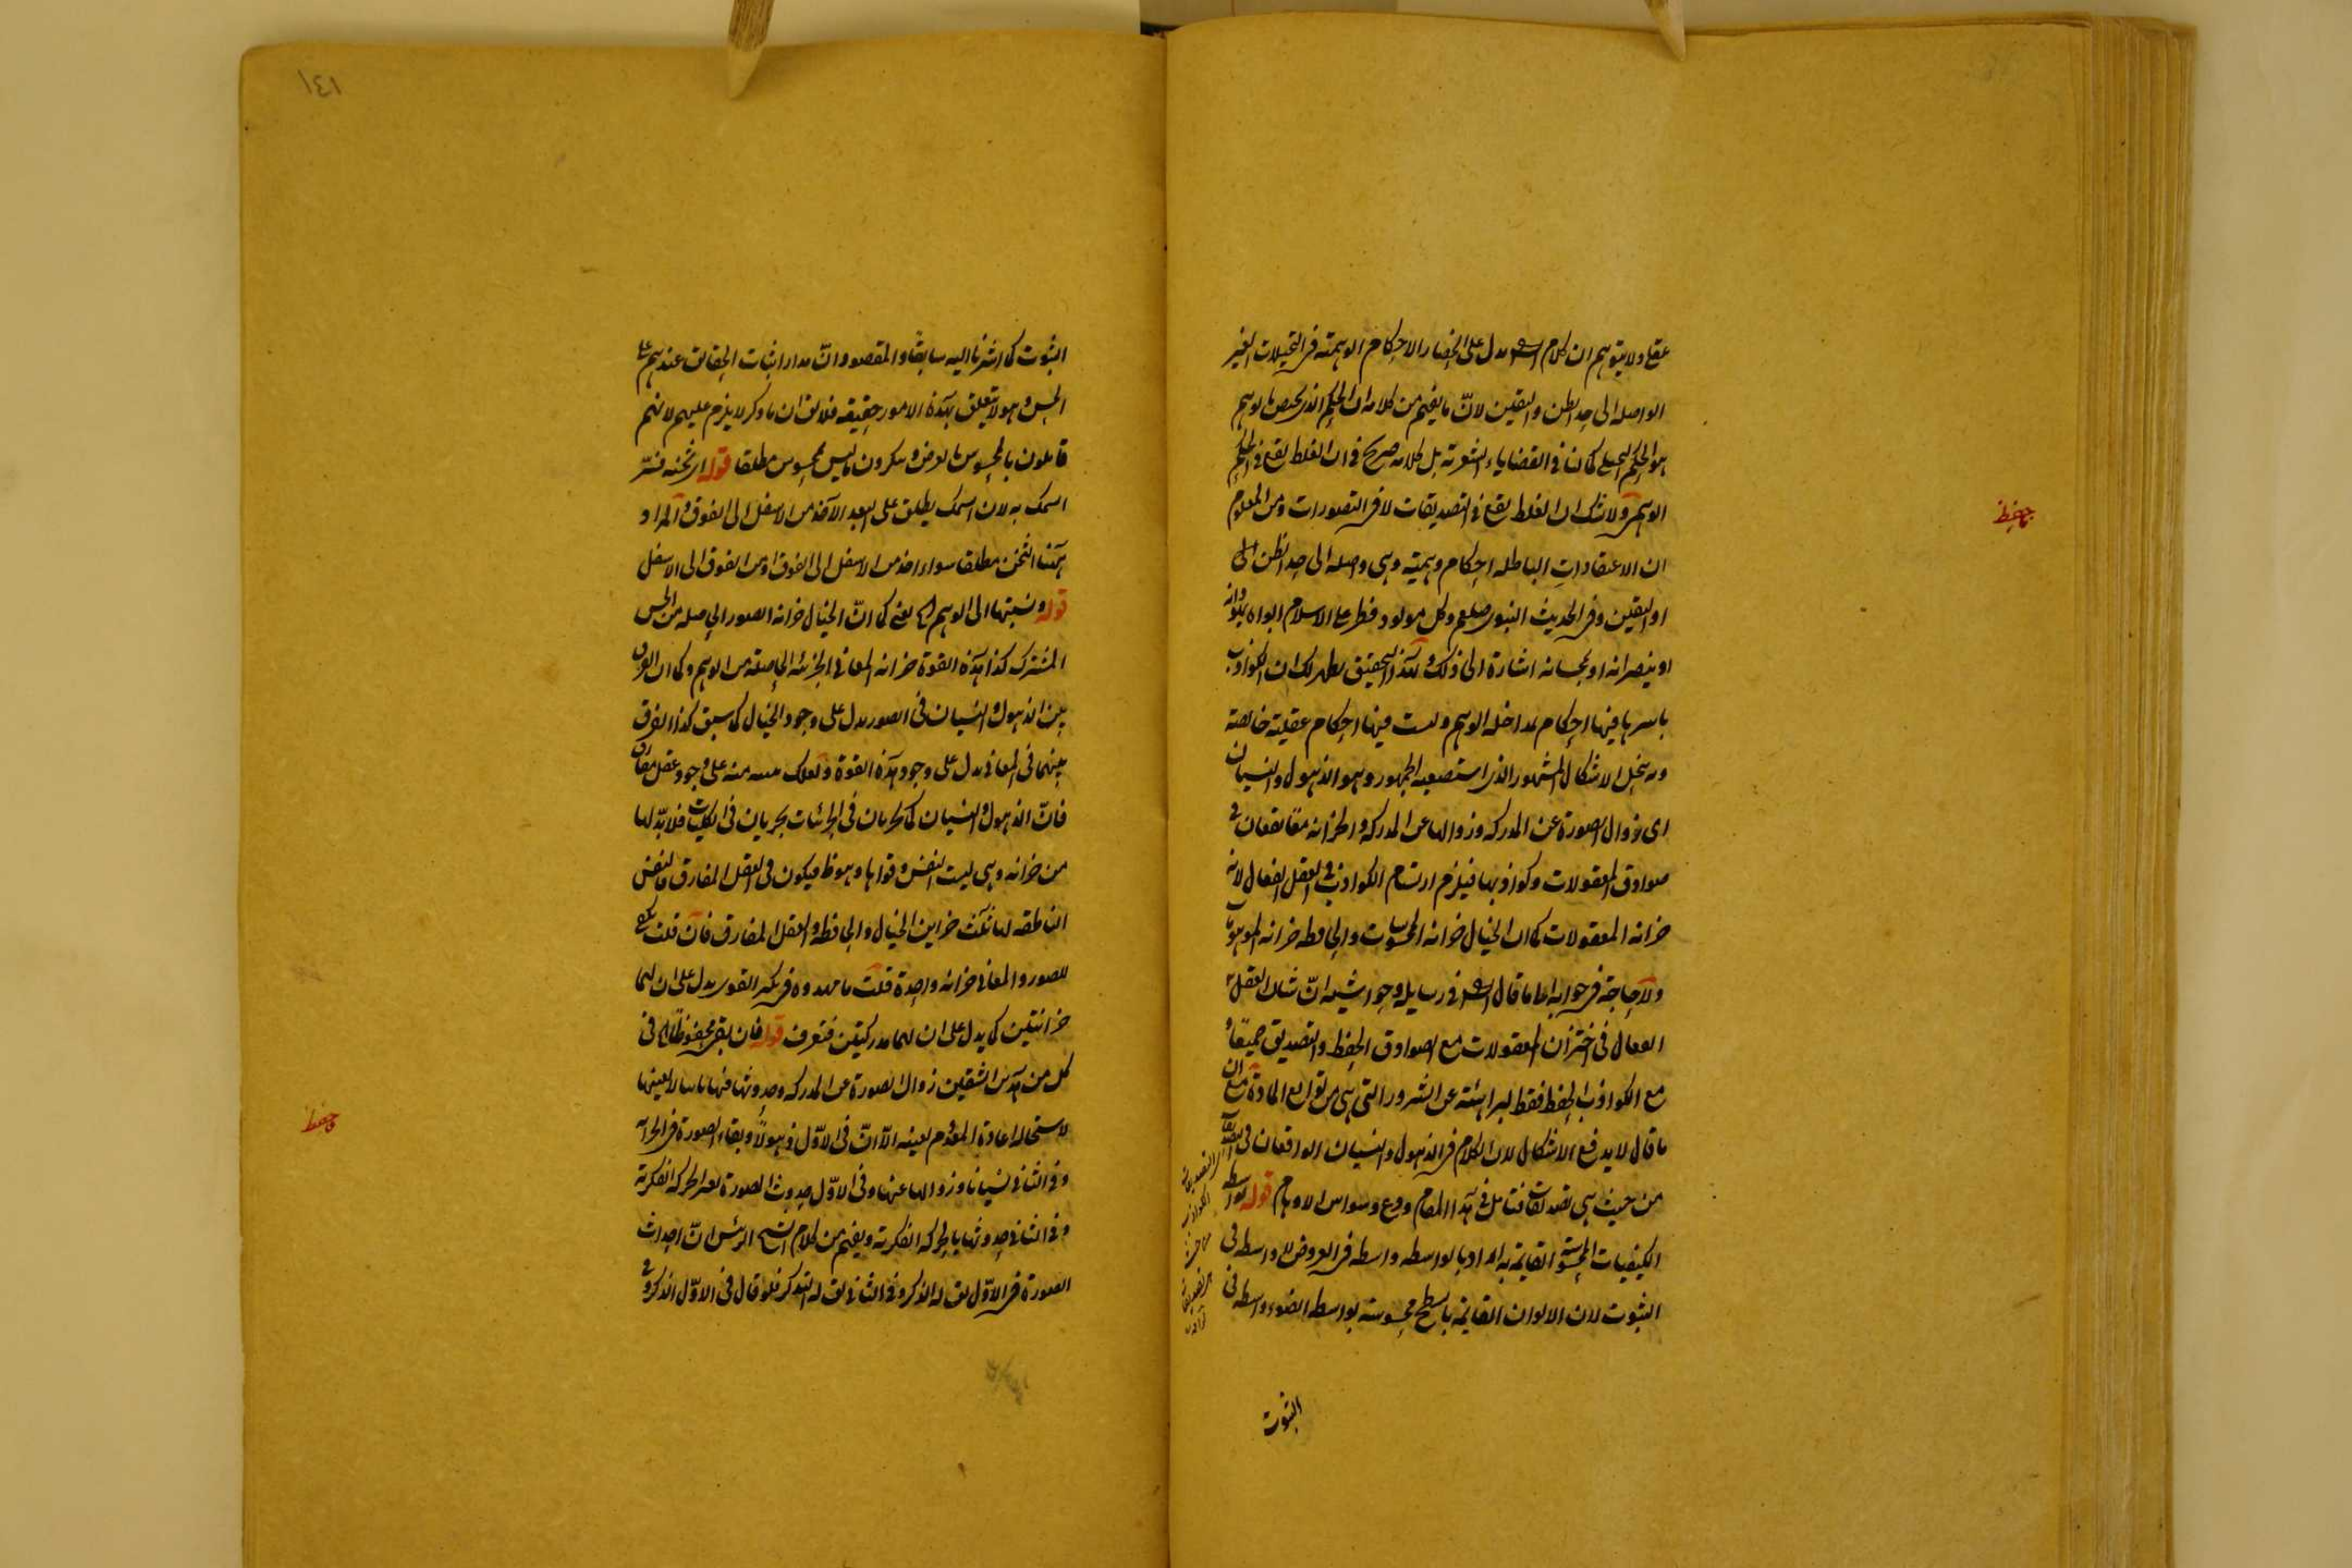 عقلا ولا يتوهم ان كلام الش يدل على انحصار الاحكام الوهمية فى التخيلات الغير
الواصلة الى حد الظن واليقين لانّ ما يفهم من كلامه ان الحكم الذى يختص بالوهم
هو الحكم التخيلى كما فى القضايا الشعرية بل كلامه صريح فى ان الغلط يقع فى الحكم
الوهمى ولا شك ان الغلط يقع فى التصديقات لا فى التصورات ومن المعلوم
ان الاعتقادات الباطلة احكام وهمية وهى واصلة الى حد الظن
او اليقين وفى الحديث النبوى صلعم وكل مولود فطر على الاسلام ابواه يهودانه
او ينصرانه او يمجسانه اشارة الى ذلك وبهذا التحقيق يظهر لك ان الكواذب
باسرها فيها احكام بمداخلة الوهم وليست فيها احكام عقلية خالصة
وبه ينحل الاشكال المشهور الذى استصعبه الجمهور وهو الذهول والنسيان
اى زوال الصورة عن المدركة وزوالها عن المدركة والخزانة معًا يقعان فى
صوادق المعقولات وكواذبها فيلزم ارتسام الكواذب فى العقل الفعال لانه
خزانة المعقولات كما ان الخيال خزانة المحسوسات والحافظة خزانة الموهومات
ولا حاجة فى جوابه الى ما قال الش فى رسايله وحواشيه انّ شان العقل
الفعال فى اختزان المعقولات مع الصوادق الحفظ والتصديق جميعًا و
مع الكواذب الحفظ فقط لبرائته عن الشرور التى هى من توابع المادة مع ان
ما قال لا يدفع الاشكال لان الكلام فى الذهول والنسيان الواقعان فى التصديقات
من حيث هى تصديقات فتامل فى هذا المقام ودع وسواس الاوهام قوله بواسطة
الكيفيات المحسوسة القايمة به اراد بالواسطة واسطة فى العروض لا واسطة فى
الثبوت لان الالوان القايمة بالسطح محسوسة بواسطة الضوء واسطة فى
الثبوت
حافظ
١٤١
الثبوت كما اشرنا اليه سابقًا والمقصود انّ مدار اثبات الحقايق عندهم على
الحس وهو لا يتعلق بهذه الامور حقيقة فلا يق ان ما ذكر لا يلزم عليهم لانهم
قايلون بالمحسوس بالعرض وينكرون ما ليس بمحسوس مطلقا قوله اى ثخنه فسّر
السمك به لان السمك يطلق على البعد الآخذ من الاسفل الى الفوق والمراد
هٓهنا الثخن مطلقا سواء اخذ من الاسفل الى الفوق او من الفوق الى الاسفل
قوله ونسبتها الى الوهم يعنى كما انّ الخيال خزانة الصور الحاصلة من الحس
المشترك كذا هذه القوة خزانة المعانى الجزئية الحاصلة من الوهم وكما ان الفرق
بين الذهول والنسيان فى الصور يدل على وجود الخيال كما سبق كذا الفرق
بينهما فى المعانى يدل على وجود هذه القوة ولعلك منه على وجود عقل مفارق
فانّ الذهول والنسيان كما يجريان فى الجزئيات يجريان فى الكليات فلا بدّ لها
من خزانة وهى ليست النفس وقواها وهو ظ فيكون فى العقل المفارق فالنفس
الناطقة لها ثلث خزاين الخيال والحافظة والعقل المفارق فان قلت
للصور والمعانى خزانة واحدة قلت ما مهدوه فى تكثر القوى يدل على ان لهما
خزانتين كما يدل على ان لهما مدركتين فتعرف قوله فان بقى محفوظًا الخ فى
كل من هذين الشقين زوال الصورة عن المدركة وحدوثها فيها لا بعينها
لاستحالة اعادة المعدوم بعينه الّا انّ فى الاوّل ذهولًا وبقاء الصورة فى الخزانة
وفى الثانى نسيانا وزوالها عنها وفى الاوّل حدوث الصورة بغير الحركة الفكرية
وفى الثانى حدوثها بالحركة الفكرية ويفهم من كلام الشيخ الرئيس انّ احداث
الصورة فى الاوّل يق له الذكر وفى الثانى يق له التذكر فلو قال فى الاوّل الذكر و فى
حافظ